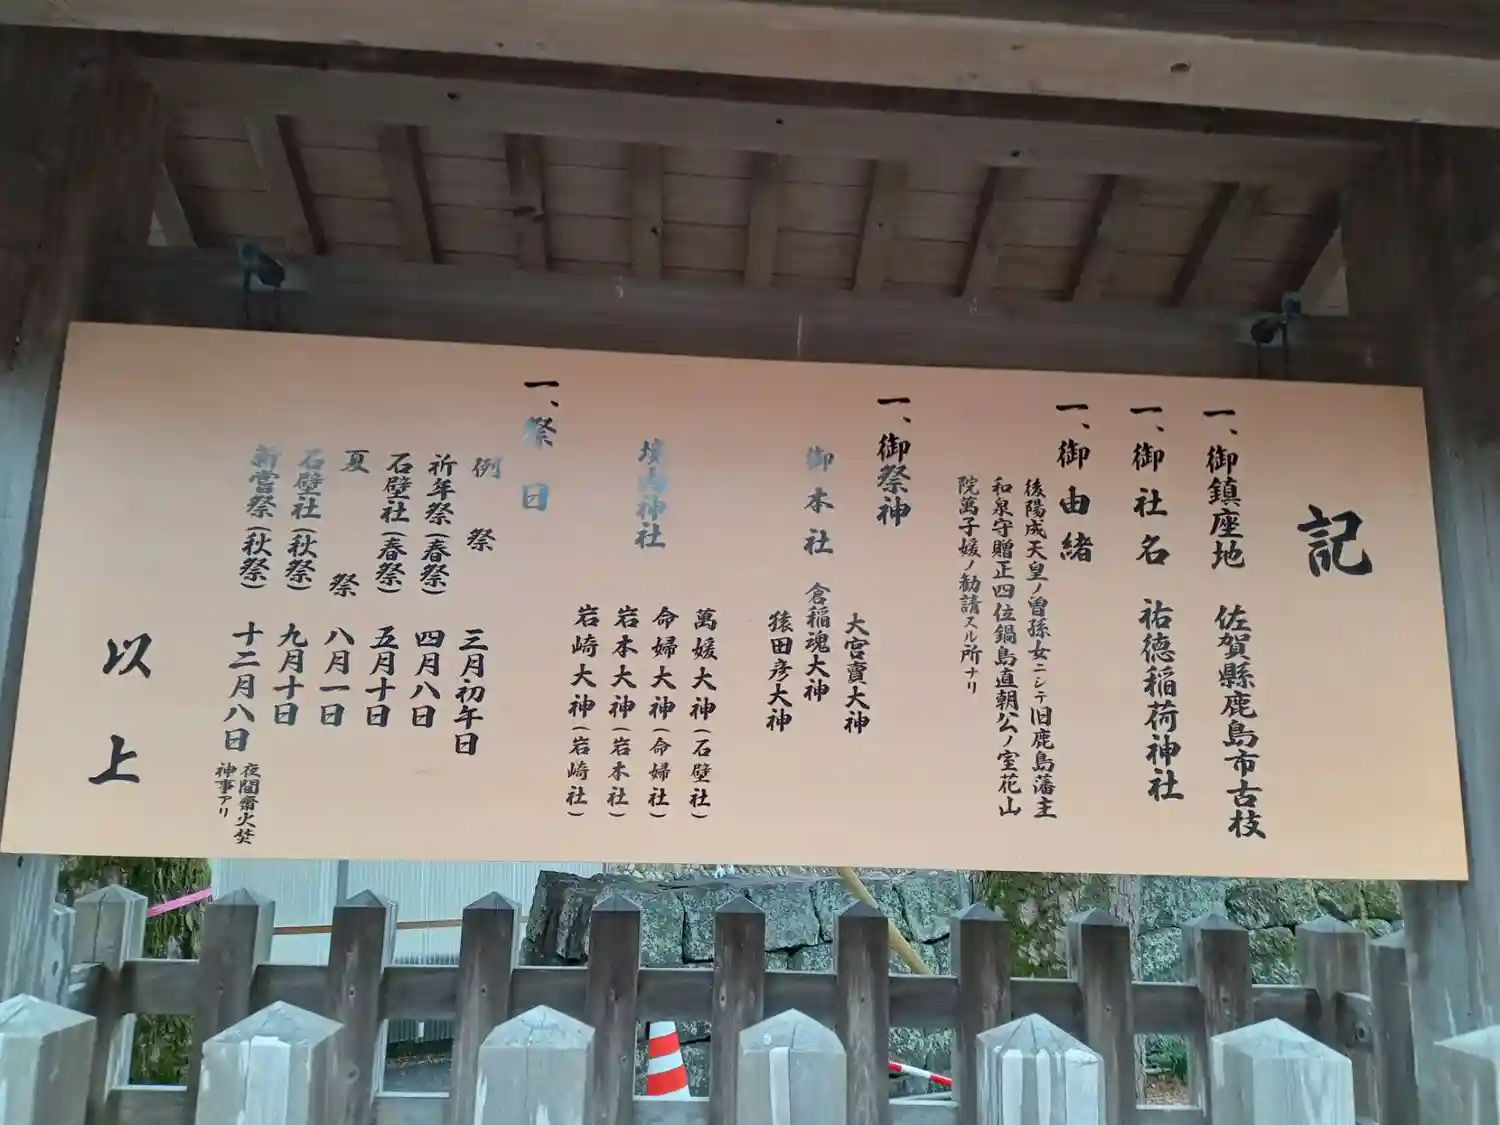 記
一、御鎮座地 佐賀縣鹿島市古枝
一、御社名 祐徳稲荷神社
一、御由緒
後陽成天皇ノ曽孫女ニシテ旧鹿島藩主
和泉守贈正四位鍋島直朝公ノ室花山
院萬子媛ノ勧請スル所ナリ
一、御祭神
御本社
大宮賣大神
倉稲魂大神
猿田彦大神
境内神社
萬媛大神(石壁社)
命婦大神(命婦社)
岩本大神(岩本社)
岩崎大神(岩崎社)
一、祭日
例祭 三月初午日
祈年祭(春祭) 四月八日
石壁社(春祭) 五月十日
夏祭 八月一日
石壁社(秋祭) 九月十日
新嘗祭(秋祭) 十二月八日 夜間齋火焚
神事アリ
以上